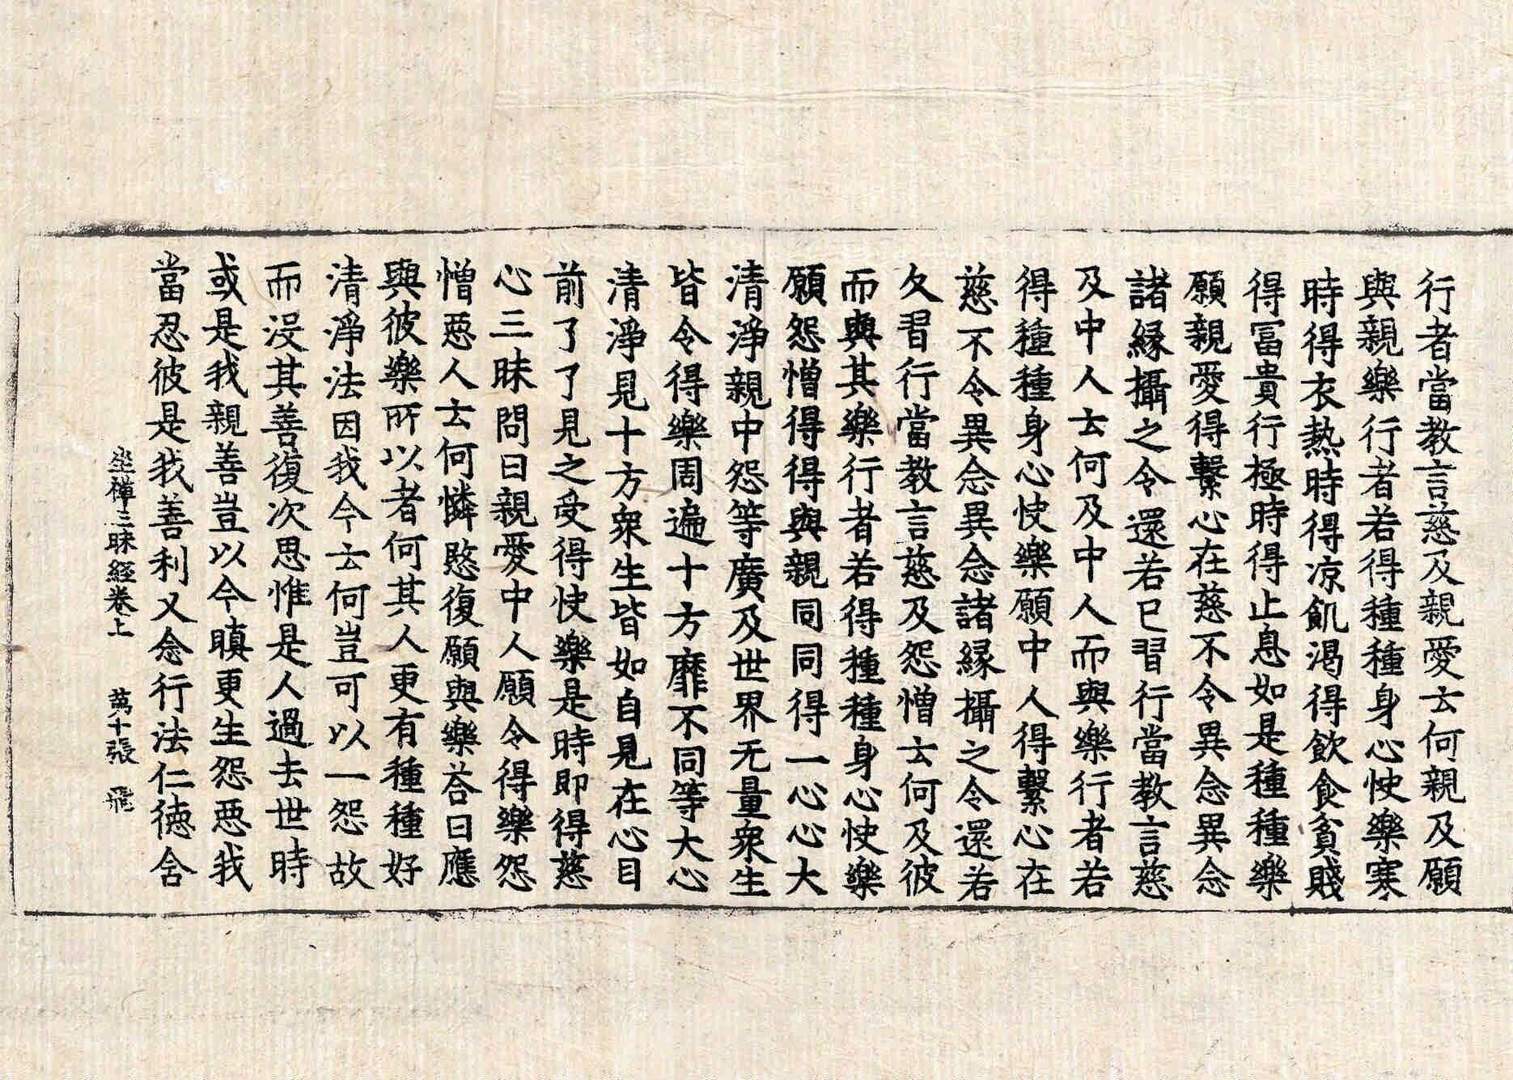 行者當教言慈及親愛云何親及願
與親樂行者若得種種身心快樂寒
時得衣熱時得凉飢渴得飲食貧賤
得冨貴行極時得止息如是種種樂
願親愛得繫心在慈不令異念異念
諸縁攝之令還若已習行當教言慈
及中人云何及中人而與樂行者若
得種種身心快樂願中人得繫心在
慈不令異念異念諸縁攝之令還若
久習行當教言慈及怨憎云何及彼
而與其樂行者若得種種身心快樂
願怨憎得得與親同同得一心心大
清淨親中怨等廣及世界无量衆生
皆令得樂周遍十方靡不同等大心
清淨見十方衆生皆如自見在心目
前了了見之受得快樂是時即得慈
心三昧問曰親愛中人願令得樂怨
憎惡人云何憐愍復願與樂荅曰應
與彼樂所以者何其人更有種種好
清淨法因我今云何豈可以一怨故
而沒其善復次思惟是人過去世時
或是我親善豈以今瞋更生怨惡我
當忍彼是我善利又念行法仁德含
坐禪三昧經卷上 萬十張